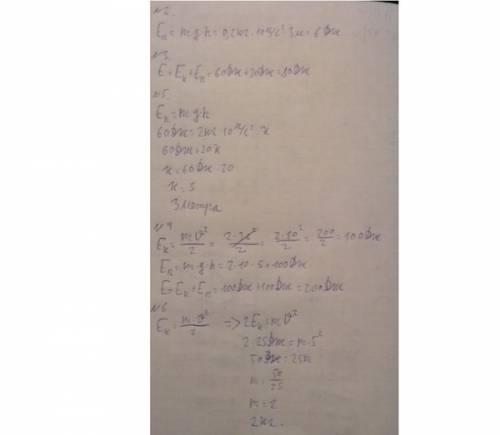 №2.
Eп = m·g·h = 0,2кг·10м/с²·3м = 6Дж
№3.
E = Eк + Eп = 60Дж + 20Дж = 80Дж
№5.
Eп = m·g·h
60Дж = 2кг·10м/с²·x
60Дж = 20x
x = 60Дж : 20
x = 3
3 метра
№4
Eк = m·υ²/2 = = 2·10²/2 = 200/2 = 100Дж
Eп = m·g·h = 2·10·5 = 100Дж
E = Eк + Eп = 100Дж + 100Дж = 200Дж
№6
Eк = m·υ²/2 => 2Eк = m·υ²
2·25Дж = m·5²
50Дж = 25m
m = 50/25
m = 2
2кг.